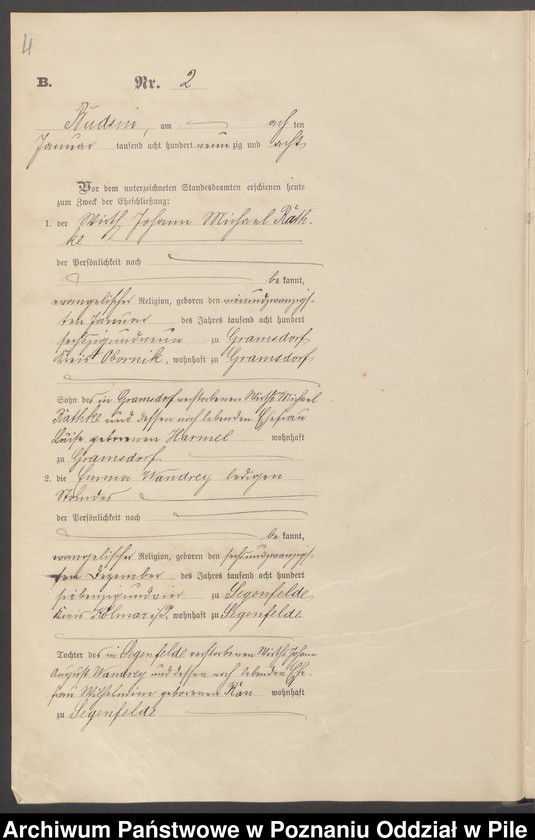 4
B. Nr. 2
Budsin, am ach ten
Januar tausend acht hundert neun zig und acht
Vor dem unterzeichneten Standesbeamten erschienen heute
zum Zweck der Eheschließung:
1. der Wirth Johann Michael Rath-
ke
der Persönlichkeit nach
be kannt,
evangelischer Religion, geboren den vierundzwanzig-
sten Januar des Jahres tausend acht hundert
sechszigundneun zu Gramsdorf
Kreis Obornik, wohnhaft zu Gramsdorf
Sohn des in Gramsdorf verstorbenen Wirths Michael
Rathke und dessen noch lebenden Ehefrau
Luise geborenen Harmel wohnhaft
zu Gramsdorf
2. die Emma Wandrey ledigen
Standes
der Persönlichkeit nach
be kannt,
evangelischer Religion, geboren den sechsundzwanzig-
sten Dezember des Jahres tausend acht hundert
siebenzigundvier zu Segenfelde
Kreis Kolmar i/P., wohnhaft zu Segenfelde
Tochter des in Segenfelde verstorbenen Wirths Johann
August Wandrey und dessen noch lebenden Ehe-
frau Wilhelmine geborenen wohnhaft
zu Segenfelde
Archiwum Państwowe w Poznaniu Oddział w Pile